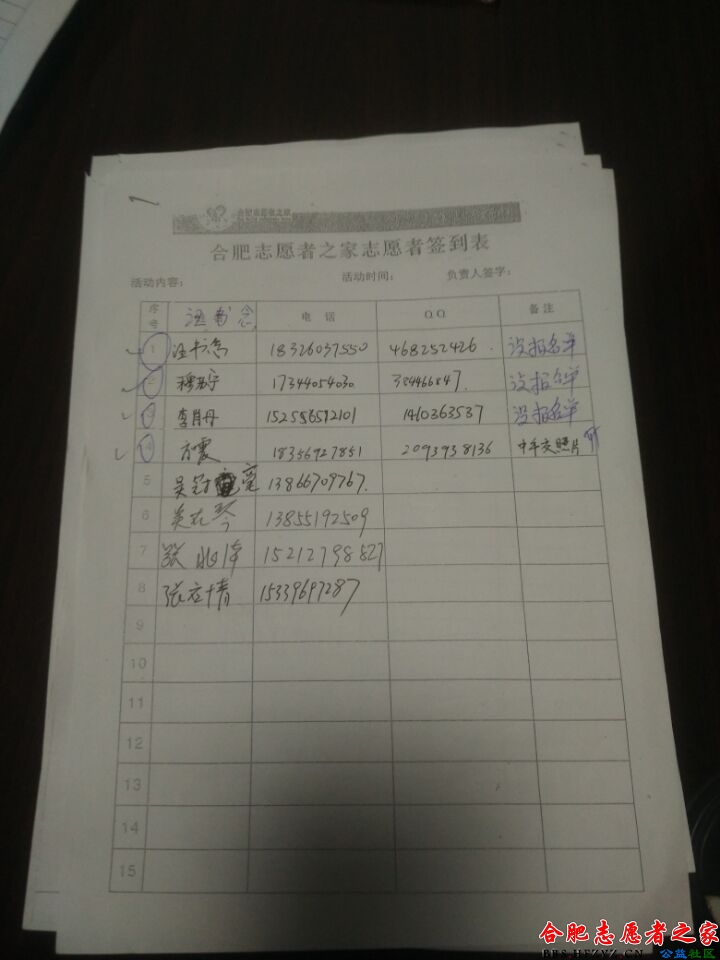 1
合肥志愿者之家
合肥志愿者之家志愿者签到表
活动内容： 活动时间： 负责人签字：
序号 汪书念 电话 QQ 备注
1 18326037550 468252426 没报名单
2 17344054030 384466847 没报名单
3 李月丹 152556592101 1460363537 没报名单
4 方震 18356927851 2093938136 中年交照片
5 13866709767
6 13855192509
7 张 15212798827
8 张 15339697287
9
10
11
12
13
14
15
合肥志愿者之家
BBS.HFZYZ.CN 公益社区